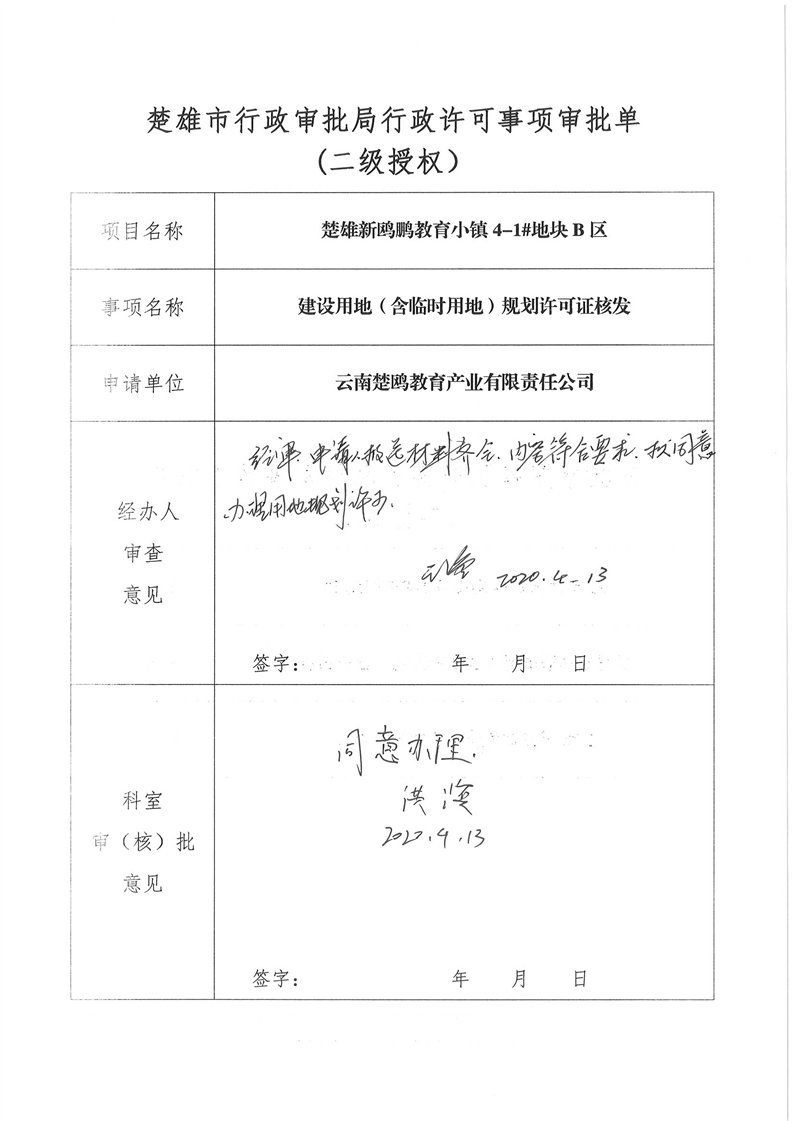 楚雄市行政审批局行政许可事项审批单
(二级授权)
项目名称
楚雄新鸥鹏教育小镇 4-1#地块 B 区
事项名称
建设用地（含临时用地）规划许可证核发
申请单位
云南楚鸥教育产业有限责任公司
经办人
审查
意见
经审、申请人报送材料齐全、内容符合要求、拟同意
办理用地规划许可、
2020.4-13
签字: 年 月 日
科室
审（核）批
意见
同意办理.
洪
2020.4.13
签字: 年 月 日